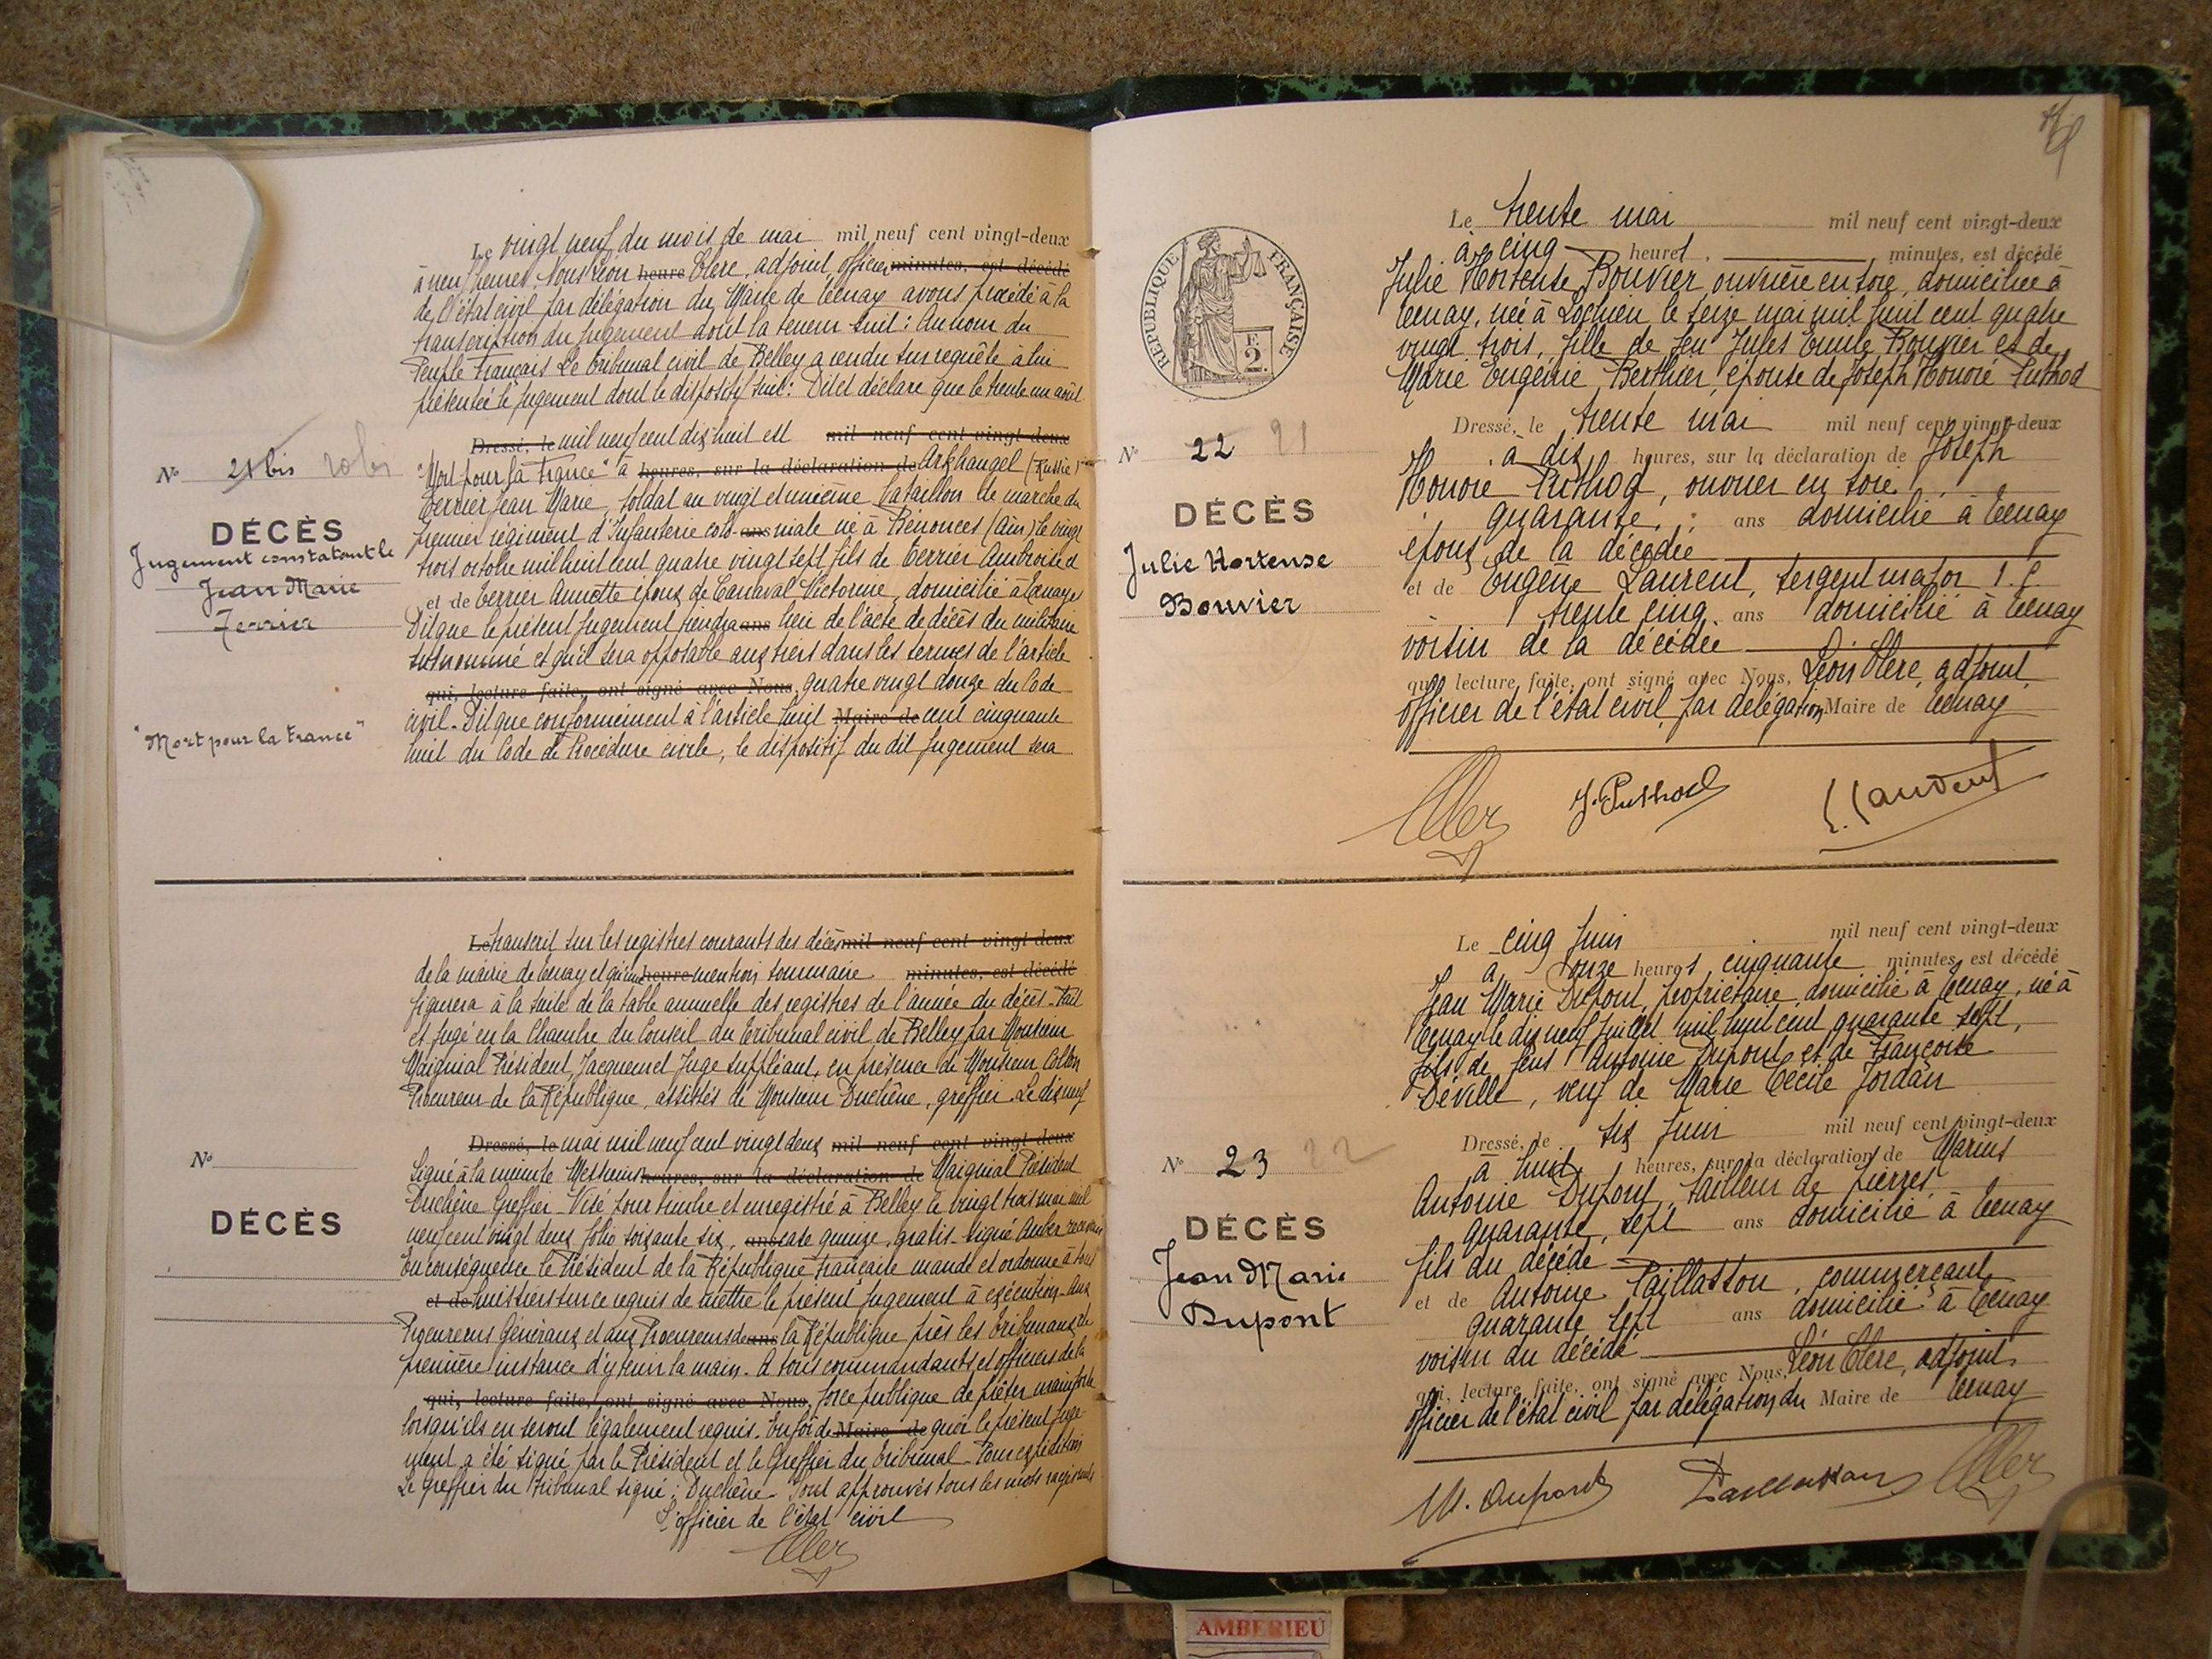 Le vingt neuf du mois de mai mil neuf cent vingt-deux
à neuf heures, Nous Léon heure Clerc, adjoint, officier minutes, est décédé
de l'état civil par délégation du Maire de Tenay avons procédé à la
transcription du jugement dont la teneur suit: Au nom du
Peuple Français Le tribunal civil de Belley a rendu sur requête à lui
présentée le jugement dont le dispositif suit: Dit et déclare que le trente un août
Dressé, le mil neuf cent dix huit est mil neuf cent vingt-deux
"Mort pour la France" à heures, sur la déclaration de Arkhangel (Russie)
Terrier Jean Marie, soldat au vingt et unième bataillon de marche du
premier régiment d'Infanterie colo- ans niale né à Bénonces (Ain) le vingt
trois octobre mil huit cent quatre vingt sept fils de Terrier Ambroise et
et de Terrier Annette époux de Carnaval Victorine, domicilié à Tenay
Dit que le présent jugement tiendra ans lieu de l'acte de décès du militaire
susnommé et qu'il sera opposable aux tiers dans les termes de l'article
qui, lecture faite, ont signé avec Nous, quatre vingt douze du Code
civil. Dit que conformément à l'article huit Maire de cent cinquante
huit du Code de Procédure civile, le dispositif du dit jugement sera
N° 21 bis 20 bis
DÉCÈS
Jugement constatant le
Jean Marie
Terrier
"Mort pour la France"
Le transcrit sur les registres courants des décès mil neuf cent vingt-deux
de la mairie de Tenay et qu'une heure mention sommaire minutes, est décédé
figurera à la suite de la table annuelle des registres de l'année du décès. Fait
et jugé en la Chambre du Conseil du Tribunal civil de Belley par Monsieur
Maignial Président, Jacquemet Juge suppléant, en présence de Monsieur
Procureur de la République, assistés de Monsieur Duchêne, greffier. Le dix neuf
Dressé, le mai mil neuf cent vingt deux mil neuf cent vingt-deux
Signé à la minute Messieurs heures, sur la déclaration de Maignial Président
Duchêne Greffier. Visé pour timbre et enregistré à Belley le vingt trois mai mil
neuf cent vingt deux folio soixante six, ans case quinze, gratis. signé receveur
En conséquence le Président de la République Française mande et ordonne à tous
et de huissiers sur ce requis de mettre le présent jugement à exécution. Aux
Procureurs Généraux et aux Procureurs de ans la République près les tribunaux de
première instance d'y tenir la main. A tous commandants et officiers de la
qui, lecture faite, ont signé avec Nous, force publique de prêter main forte
lorsqu'ils en seront légalement requis. En foi de Maire de quoi le présent juge-
ment a été signé par le Président et le Greffier du tribunal. Pour expédition
Le Greffier du Tribunal signé: Duchêne. Sont approuvés tous les mots rayés nuls
L'officier de l'état civil
N°
DÉCÈS
Le trente mai mil neuf cent vingt-deux
à cinq heures, minutes, est décédé
Julie Hortense Bouvier, ouvrière en soie, domiciliée à
Tenay, née à Lochieu le seize mai mil huit cent quatre
vingt trois, fille de feu Jules Emile Bouvier et de
Marie Eugénie Berthier, épouse de Joseph Honoré Puthod
Dressé, le trente mai mil neuf cent vingt-deux
à dix heures, sur la déclaration de Joseph
Honoré Puthod, ouvrier en soie
quarante ans domicilié à Tenay
époux de la décédée
et de Eugène Laurent, sergent major
trente cinq ans domicilié à Tenay
voisin de la décédée
qui, lecture faite, ont signé avec Nous, Léon Clerc, adjoint,
officier de l'état civil par délégation Maire de Tenay
J. Puthod
E. Laurent
RÉPUBLIQUE FRANÇAISE
E
2.
N° 22 21
DÉCÈS
Julie Hortense
Bouvier
Le cinq juin mil neuf cent vingt-deux
à onze heures cinquante minutes, est décédé
Jean Marie Dupont, propriétaire, domicilié à Tenay, né à
Tenay le dix neuf juillet mil huit cent quarante sept,
fils de feus Antoine Dupont et de Françoise
Déville, veuf de Marie Cécile Jordan
Dressé, le six juin mil neuf cent vingt-deux
à huit heures, sur la déclaration de Marius
Antoine Dupont, tailleur de pierres,
quarante sept ans domicilié à Tenay
fils du décédé
et de Antoine Paillasson, commerçant,
quarante sept ans domicilié à Tenay
voisin du décédé
qui, lecture faite, ont signé avec Nous, Léon Clerc, adjoint,
officier de l'état civil par délégation du Maire de Tenay
M. Dupont
Paillasson
N° 23 22
DÉCÈS
Jean Marie
Dupont
AMBERIEU